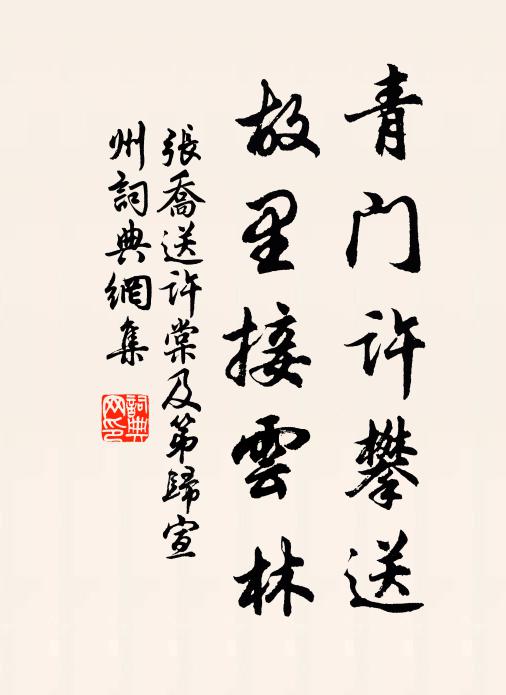 青门许攀送
故里接雲林
張喬送許棠及第歸宣
州詞典網集
詞典
网印